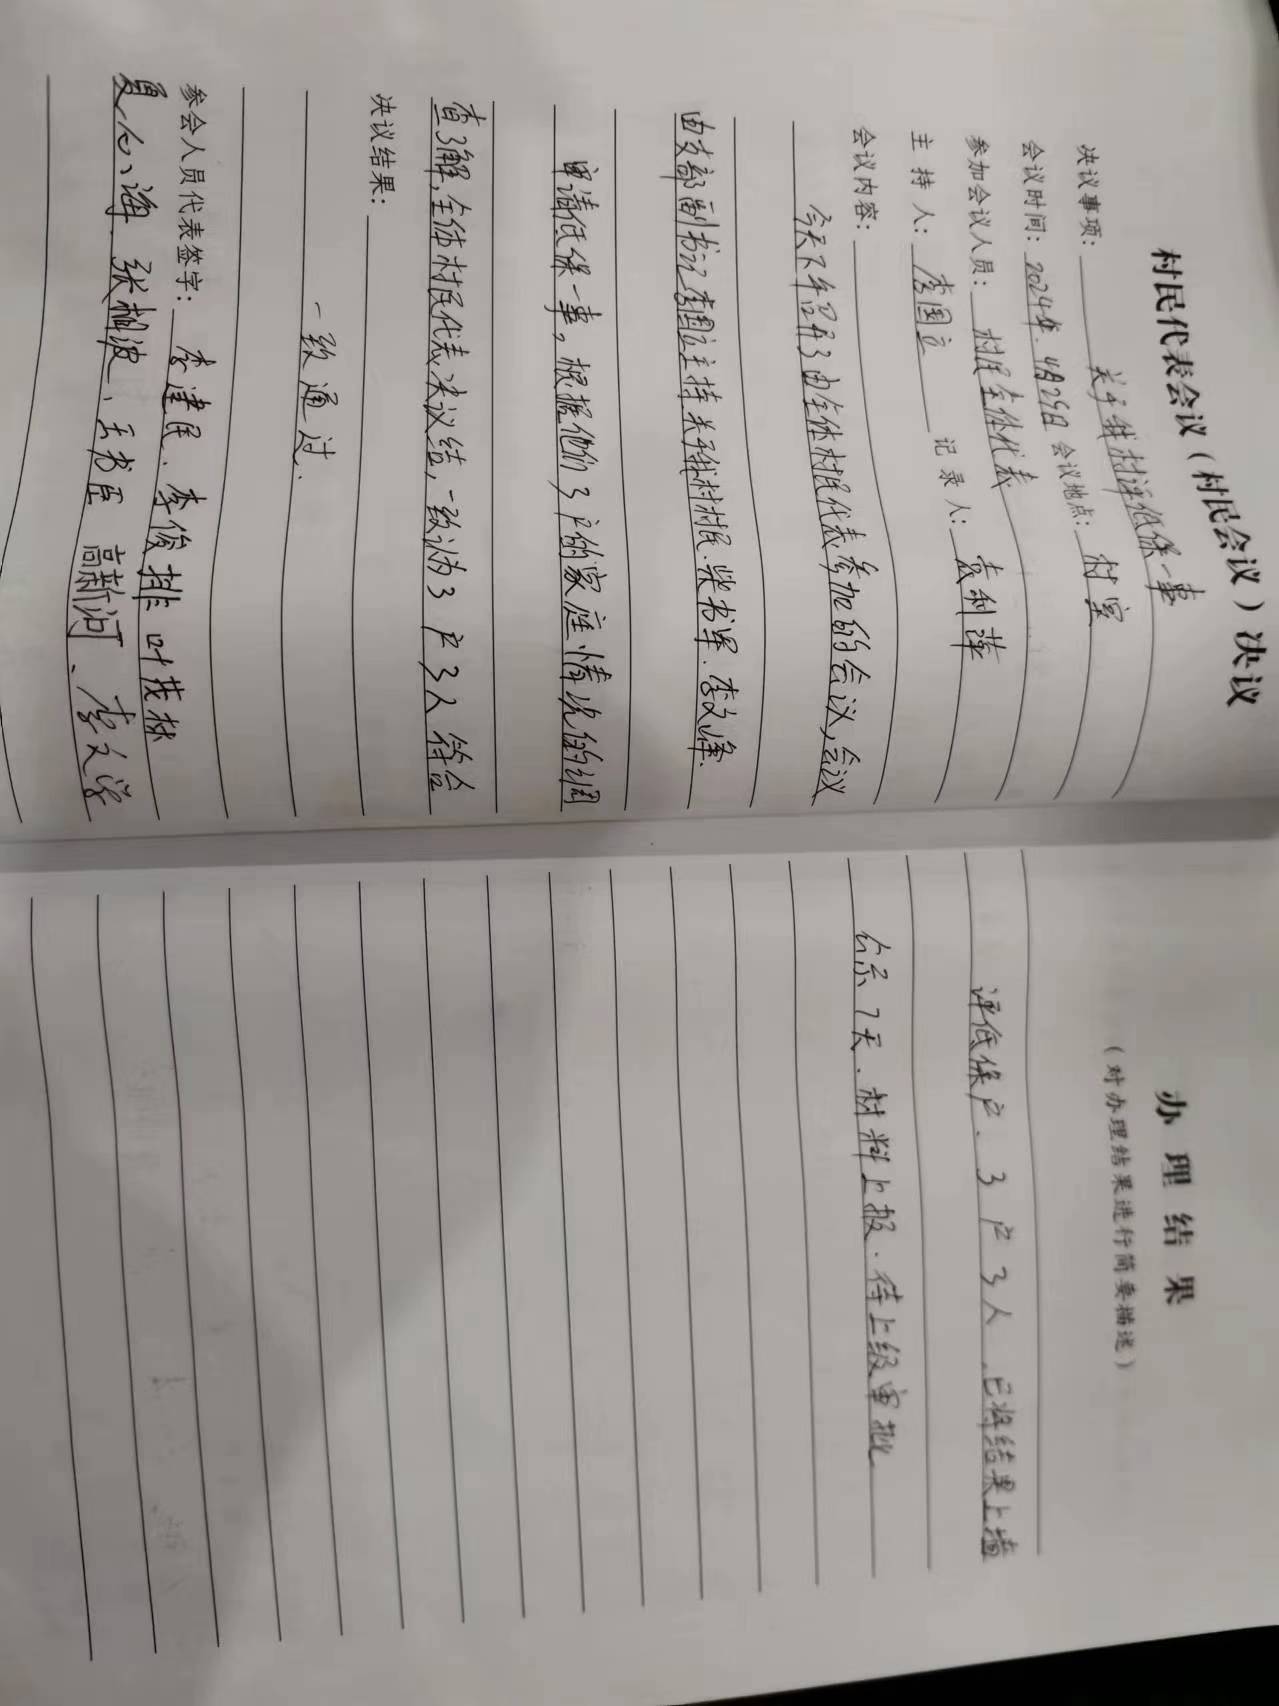 村民代表会议（村民会议）决议
决议事项：关于我村评低保一事
会议时间：2024年.4月25日 会议地点：村室
参加会议人员：村民全体代表
主持人：李国立 记录人：袁利萍
会议内容：
今天下午召开了由全体村民代表参加的会议,会议
由支部副书记李国立主持关于我村村民.柴书军.李文峰.
申请低保一事，根据他们3户的家庭情况的调
查了解,全体村民代表决议结,一致认为3户3人符合
决议结果：
一致通过.
参会人员代表签字：李建民、李俊排 叶茂林
夏心海 张楜波、王书臣 高新河、李文学
办理结果
（对办理结果进行简要描述）
评低保户.3户3人.已将结果上墙
公示7天.材料上报.待上级审批